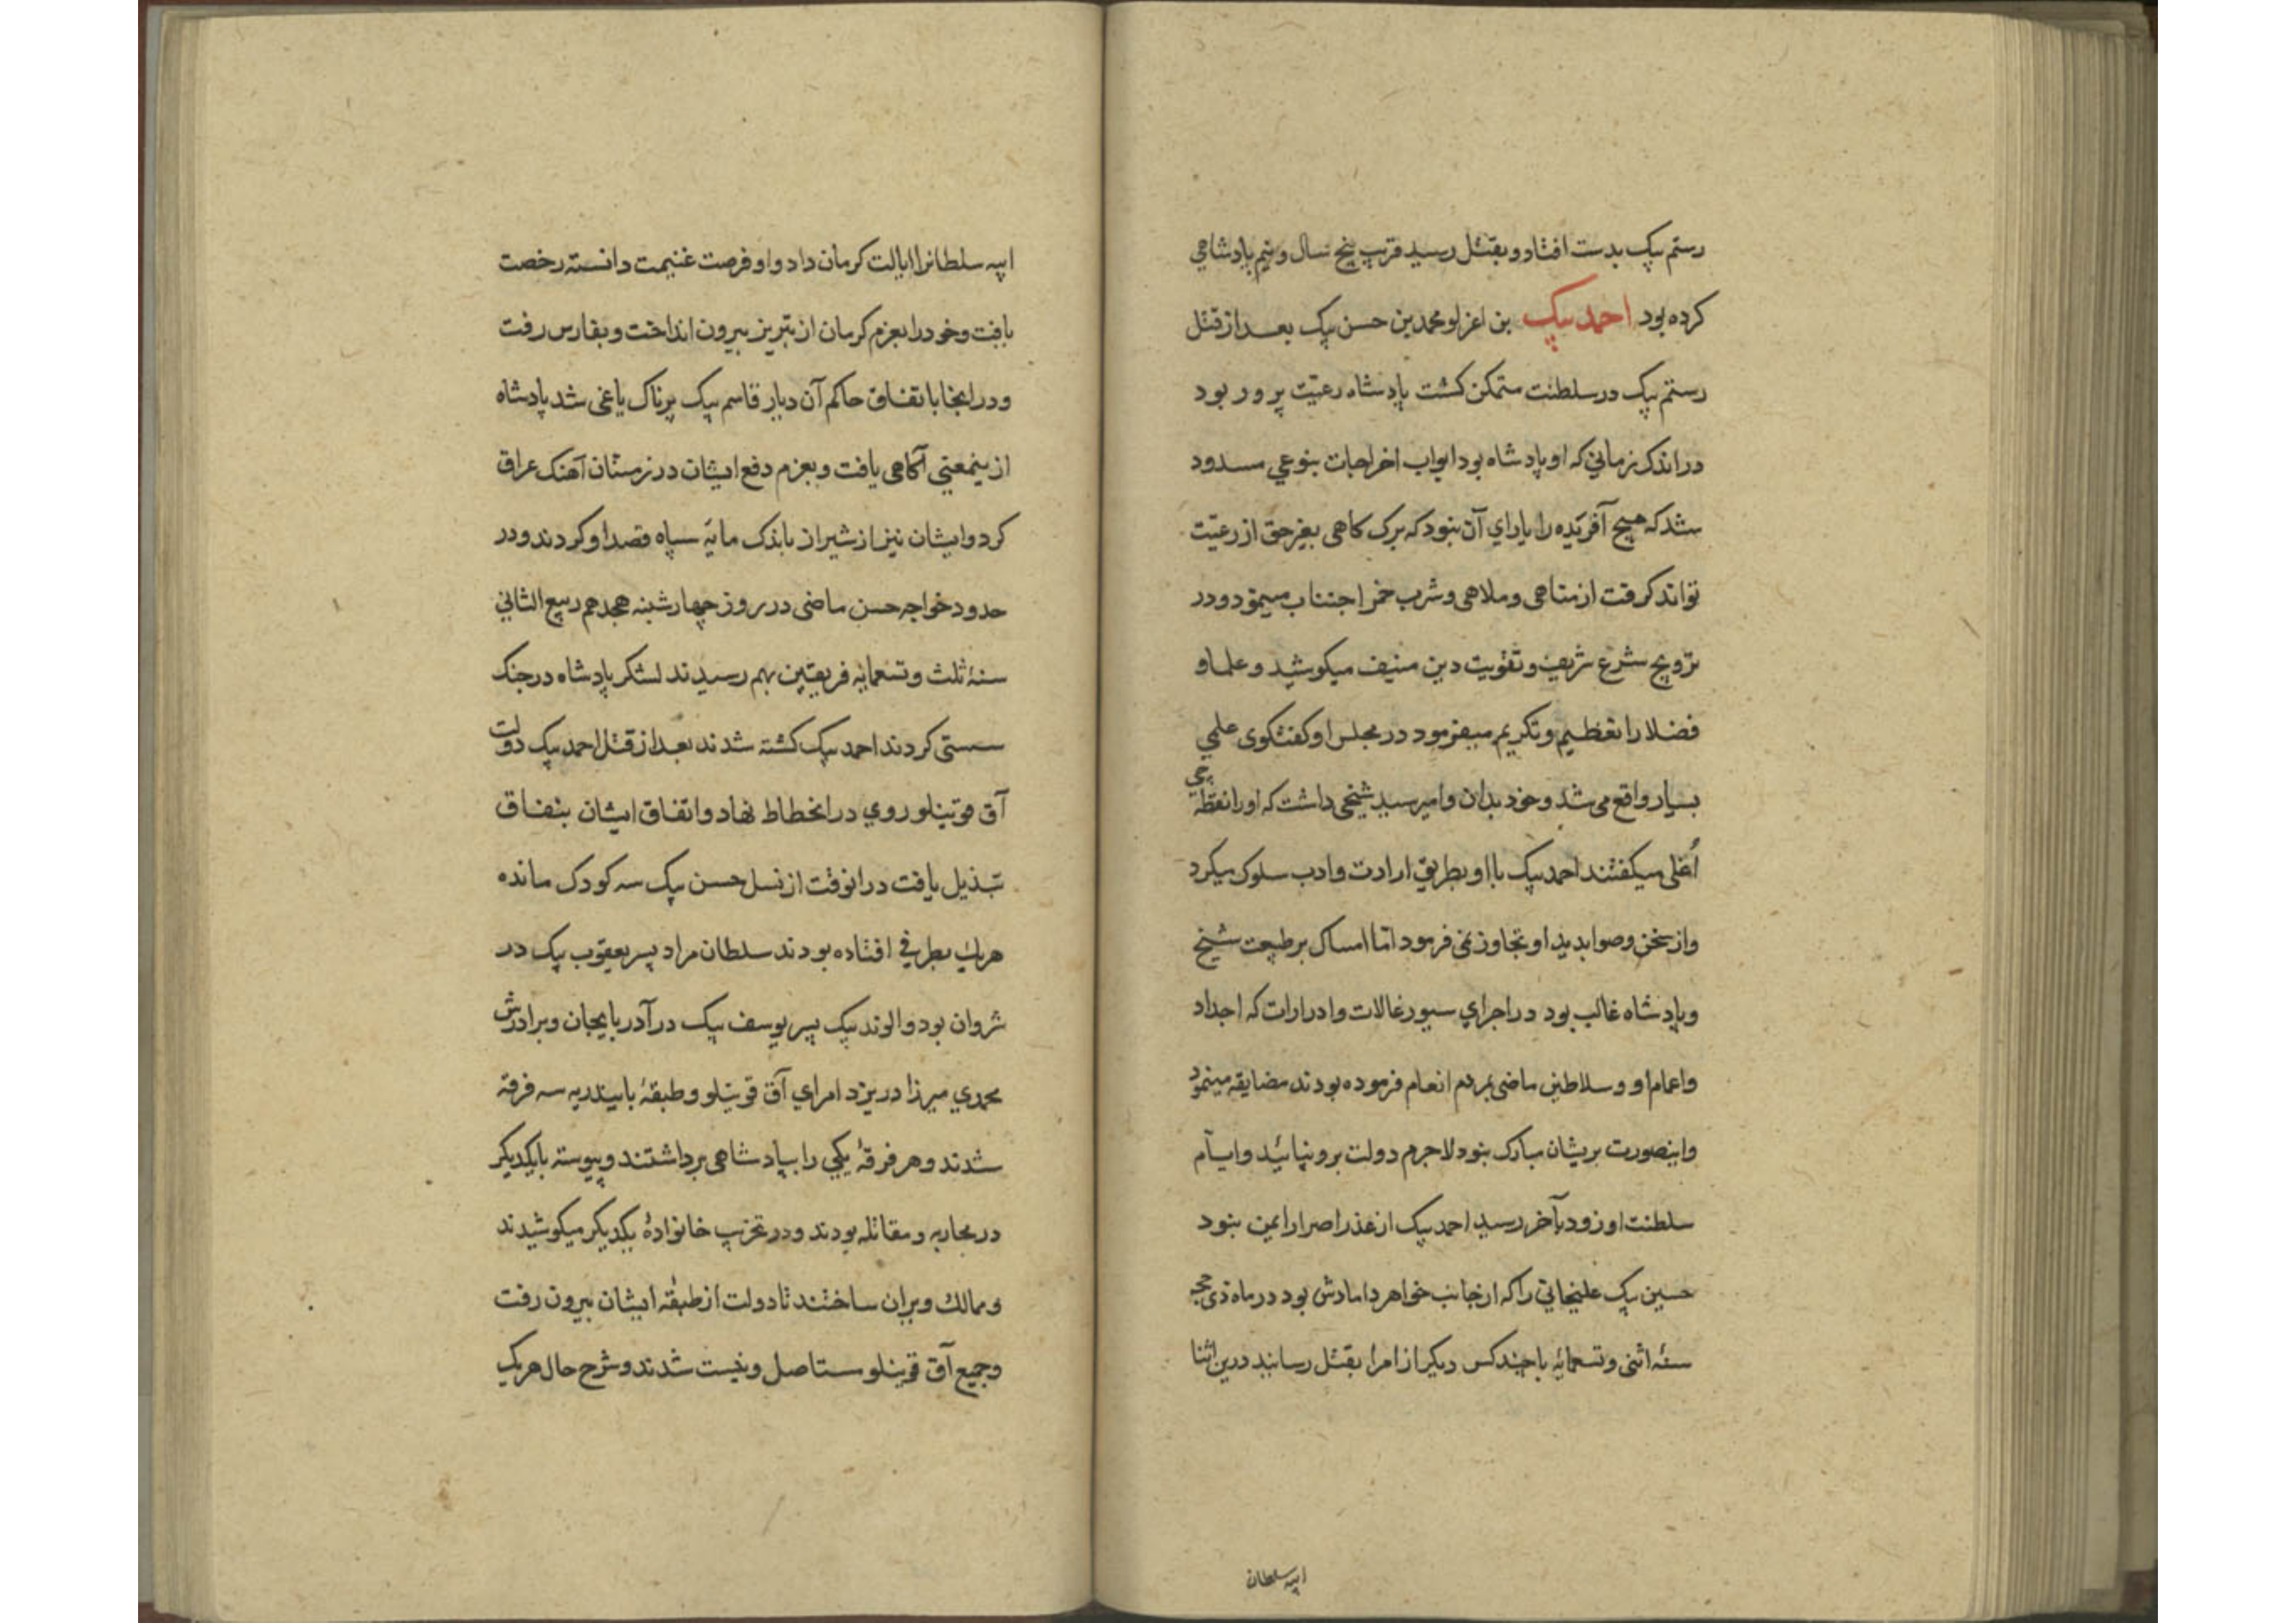 رستم بیک بدست افتاد و بقتل رسید قریب پنج سال و نیم پادشاهي
کرده بود احمد بیک بن اغزلو محمد بن حسن بیک بعد از قتل
رستم بیک در سلطنت متمکن کشت پادشاه رعیّت پرور بود
در اندک زماني که او پادشاه بود ابواب اخراجات بنوعي مسدود
شد که هیچ آفریده را یاراي آن نبود که برک کاهی بغیر حق از رعیّت
تواند کرفت از مناهی و ملاهی و شرب خمر اجتناب میمود و در
ترویج شرع شریف و تقویت دین منیف میکوشید و علما و
فضلا را تعظیم و تکریم میفرمود در مجلس او کفتکوی علمي
بسیار واقع می شد و خود بدان وامیرسید شیخی داشت که او را نقطه جي
اُغلی میکفتند احمد بیک با او بطریق ارادت و ادب سلوک میکرد
و از سخن و صوابدید او تجاوز نمی فرمود امّا امساک بر طبیعت شیخ
و پادشاه غالب بود در اجراي سیورغالات و ادرارات که اجداد
و اعمام او و سلاطین ماضی بمردم انعام فرموده بودند مضایقه مینمود
و اینصورت بریشان مبارک نبود لاجرم دولت برو نپائید و ایام
سلطنت او زود بآخر رسید احمد بیک از غدر امرا ایمن نبود
حسین بیک علیخانی را که از جانب خواهر دامادش بود در ماه ذی حجه
سنهٔ اثنی و تسعمائه با چند کس دیکر از امرا بقتل رسانید درین اثنا
ایبه سلطان
ایبه سلطانرا ایالت کرمان داد و او فرصت غنیمت دانسته رخصت
یافت و خود را بعزم کرمان از تبریز بیرون انداخت و بفارس رفت
و در اینجا باتفاق حاکم آن دیار قاسم بیک پرناک یاغی شد پادشاه
ازینمعنی آکاهی یافت و بعزم دفع ایشان در زمستان آهنک عراق
کرد و ایشان نیز از شیراز باندک مایهٔ سپاه قصد او کردند و در
حدود خواجه حسن ماضی در روز چهارشنبه هجدهم ربیع الثاني
سنهٔ ثلث و تسعمائه فریقین بهم رسیدند لشکر پادشاه در جنک
سستی کردند احمد بیک کشته شدند بعد از قتل احمد بیک دولت
آق قوینلو روي در انحطاط نهاد و اتفاق ایشان بنفاق
تبذیل یافت در انوقت از نسل حسن بیک سه کودک مانده
هریک بطرفي افتاده بودند سلطان مراد پسر یعقوب بیک در
شروان بود و الوند بیک پسر یوسف بیک در آذربایجان و برادرش
محمدي میرزا در یزد امراي آق قوینلو و طبقهٔ بایندریه سه فرقه
شدند و هر فرقهٔ یکي را بپادشاهی برداشتند و پیوسته با یکدیکر
در محاربه و مقاتله بودند و در تخریب خانوادهٔ یکدیکر میکوشیدند
و ممالک ویران ساختند تا دولت از طبقهٔ ایشان بیرون رفت
و جمیع آق قوینلو مستاصل و نیست شدند و شرح حال هریک